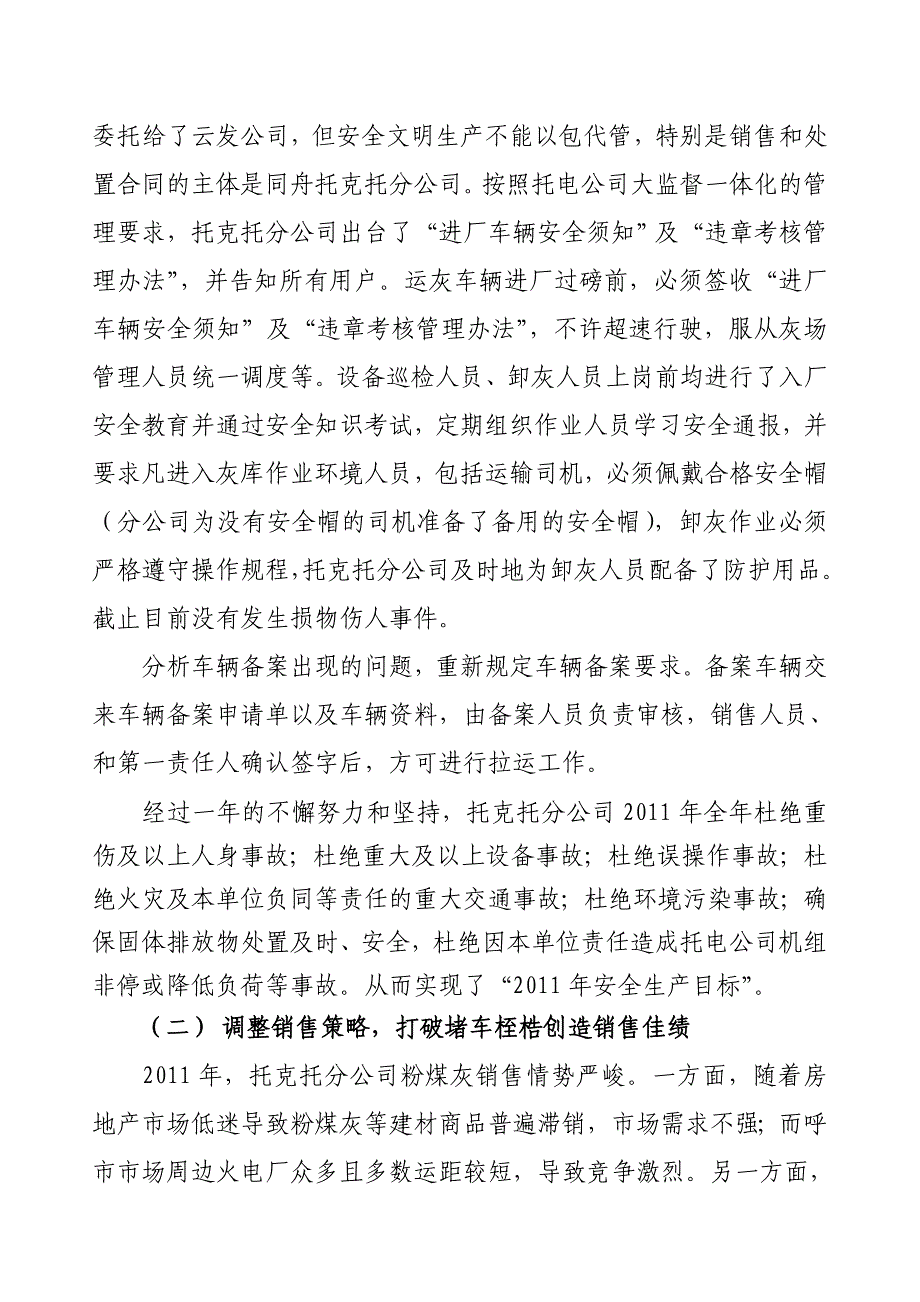 委托给了云发公司，但安全文明生产不能以包代管，特别是销售和处
置合同的主体是同舟托克托分公司。按照托电公司大监督一体化的管
理要求，托克托分公司出台了“进厂车辆安全须知”及“违章考核管
理办法”，并告知所有用户。运灰车辆进厂过磅前，必须签收“进厂
车辆安全须知”及“违章考核管理办法”，不许超速行驶，服从灰场
管理人员统一调度等。设备巡检人员、卸灰人员上岗前均进行了入厂
安全教育并通过安全知识考试，定期组织作业人员学习安全通报，并
要求凡进入灰库作业环境人员，包括运输司机，必须佩戴合格安全帽
（分公司为没有安全帽的司机准备了备用的安全帽），卸灰作业必须
严格遵守操作规程，托克托分公司及时地为卸灰人员配备了防护用品。
截止目前没有发生损物伤人事件。
分析车辆备案出现的问题，重新规定车辆备案要求。备案车辆交
来车辆备案申请单以及车辆资料，由备案人员负责审核，销售人员、
和第一责任人确认签字后，方可进行拉运工作。
经过一年的不懈努力和坚持，托克托分公司 2011 年全年杜绝重
伤及以上人身事故；杜绝重大及以上设备事故；杜绝误操作事故；杜
绝火灾及本单位负同等责任的重大交通事故；杜绝环境污染事故；确
保固体排放物处置及时、安全，杜绝因本单位责任造成托电公司机组
非停或降低负荷等事故。从而实现了“2011 年安全生产目标”。
（二）调整销售策略，打破堵车桎梏创造销售佳绩
2011 年，托克托分公司粉煤灰销售情势严峻。一方面，随着房
地产市场低迷导致粉煤灰等建材商品普遍滞销，市场需求不强；而呼
市市场周边火电厂众多且多数运距较短，导致竞争激烈。另一方面，